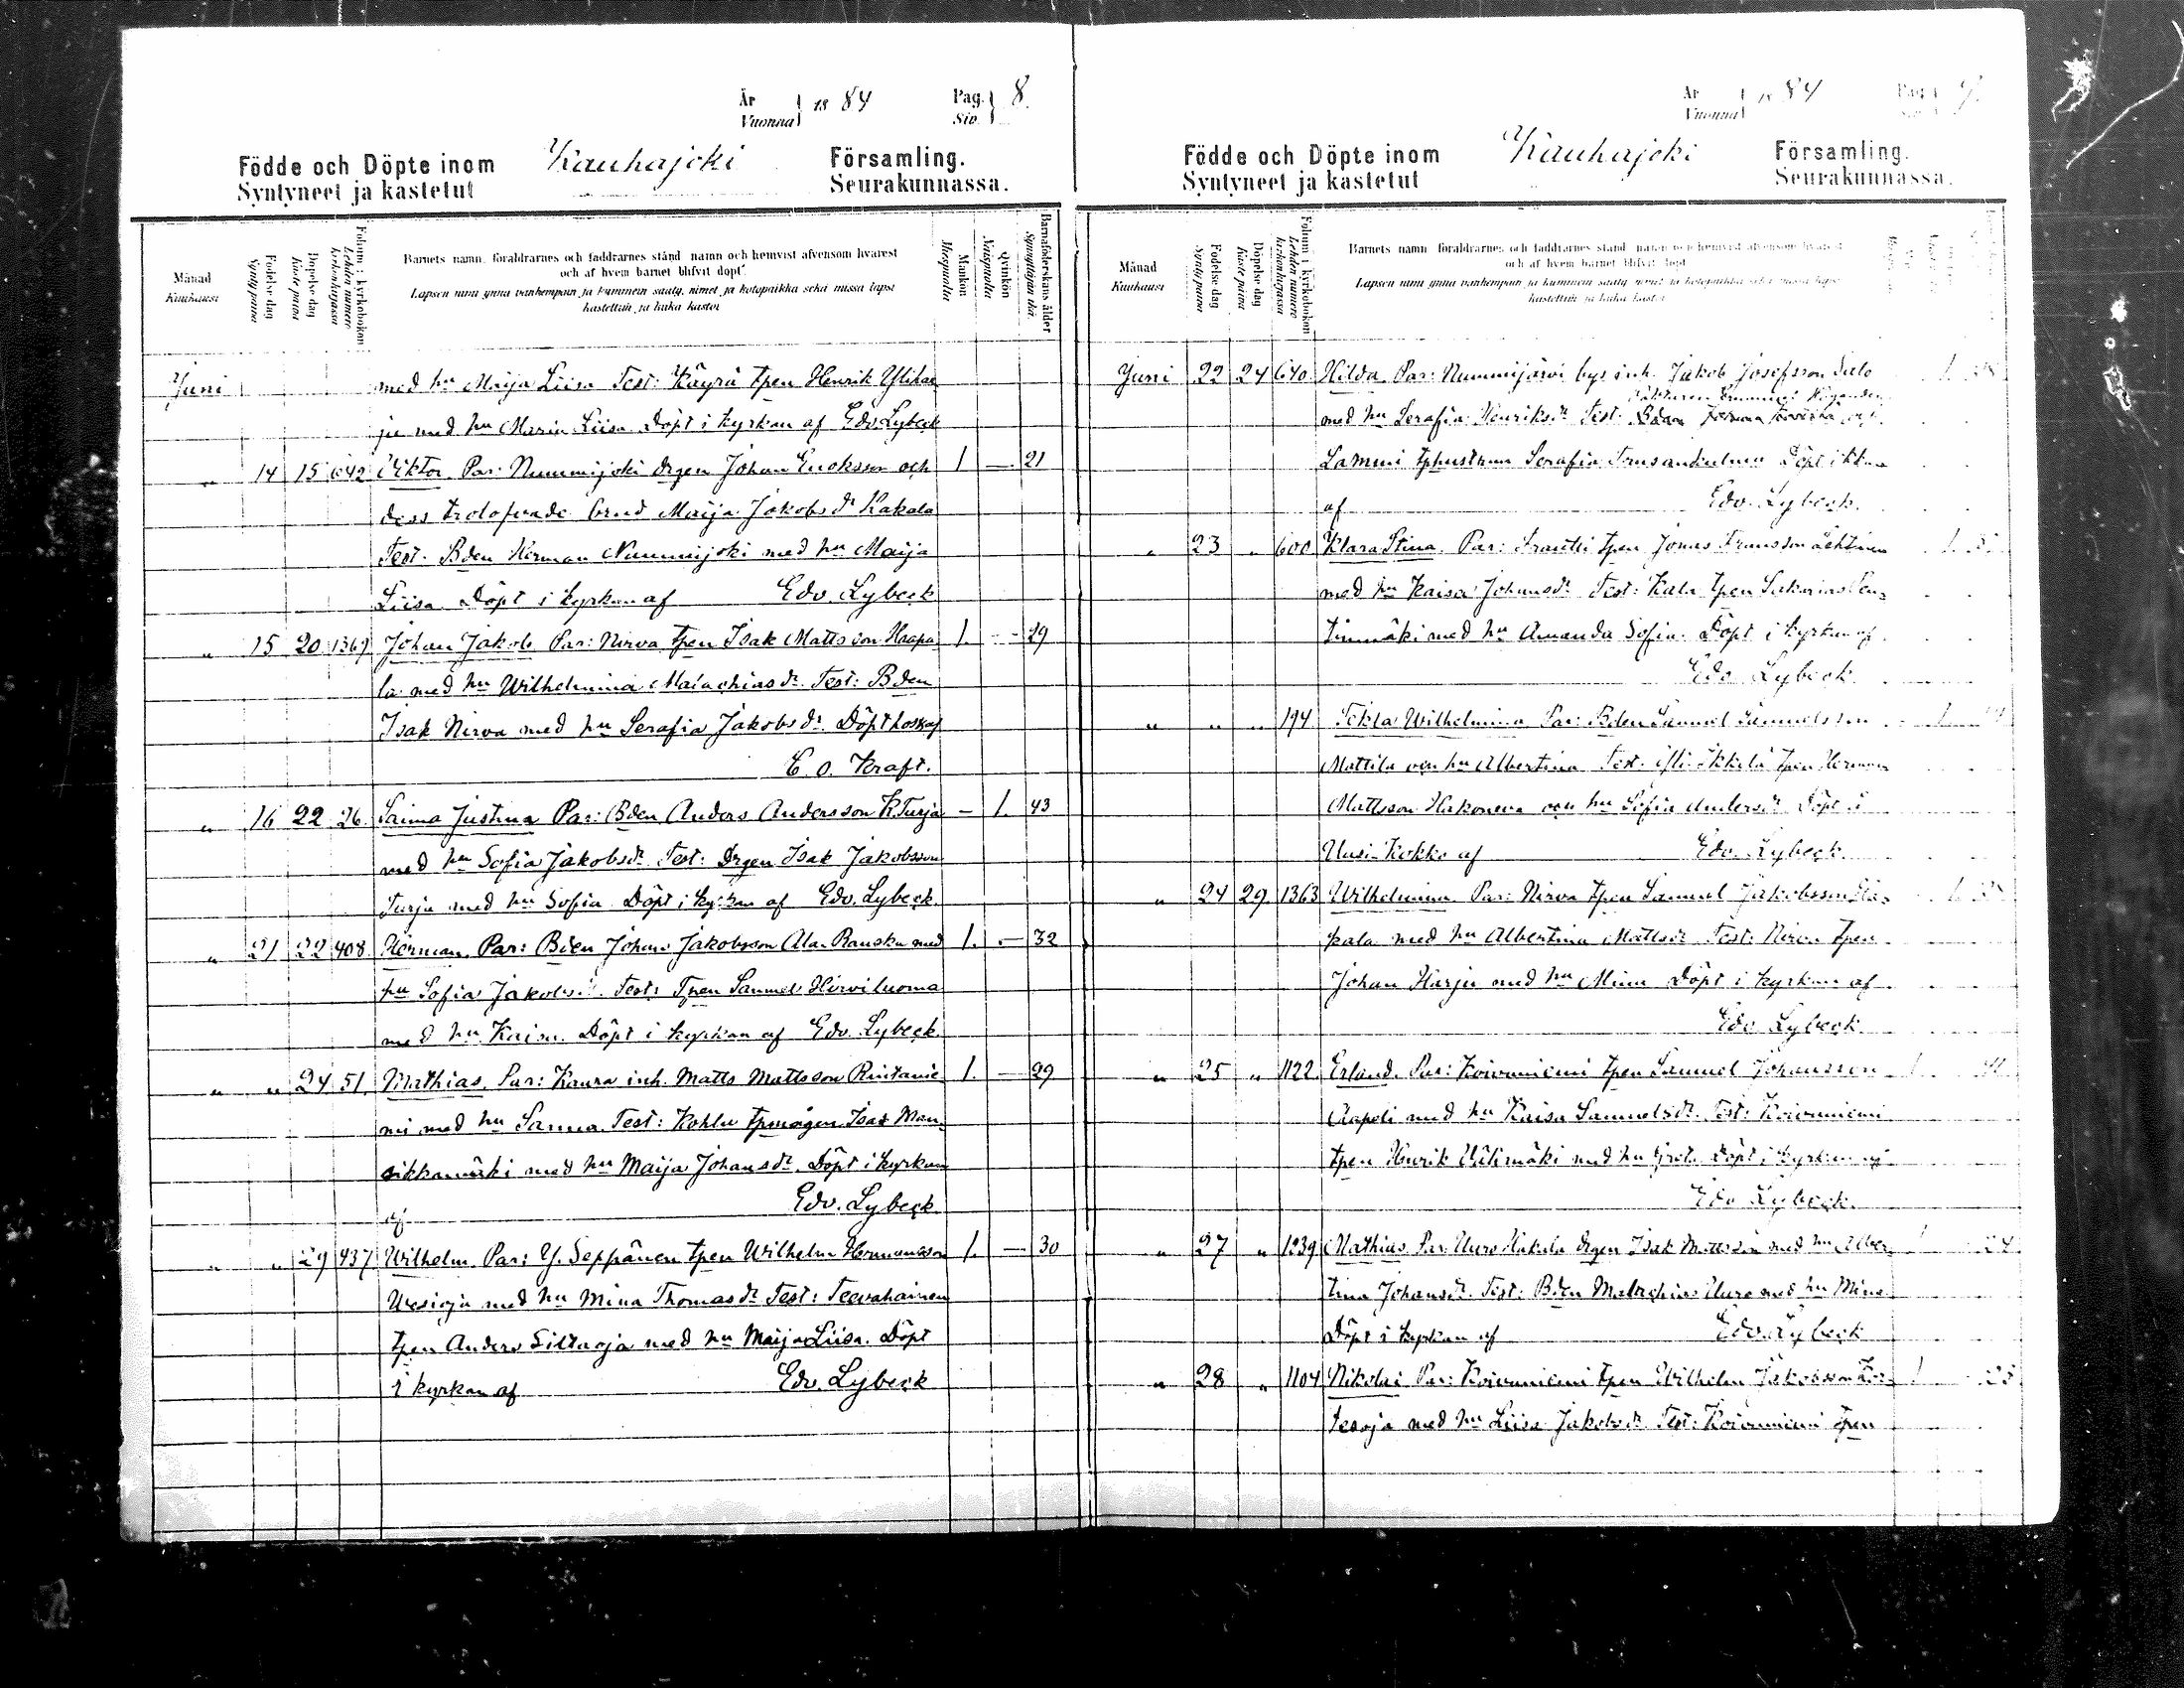 År
Vuonna 1884 Pag. Siv. 8.
Födde och Döpte inom Kauhajoki Församling.
Syntyneet ja kastetut Seurakunnassa.
Månad
Kuukausi
Födelse dag
Synty päivä
Döpelse dag
Kaste päivä
Folium i kyrkoboken
Lehden numero kirkonkirjassa
Barnets namn, föräldrarnes och faddrarnes stånd namn och hemvist äfvensom hvarest
och af hvem barnet blifvit döpt.
Lapsen nimi ynnä vanhempain ja kummein sääty, nimet ja kotopaikka sekä missä lapsi
kastettiin ja kuka kastoi
Mankön
Miespuolia
Qvinkön
Naispuolia
Barnaföderskans ålder
Synnyttäjän ikä.
Juni med hu Maija Liisa Test: Käyrä tpen Henrik Ylihar
ju med hu Maria Liisa Döpt i kyrkan af Edv. Lybeck
" 14 15 642 Viktor Par: Nummijoki drgen Johan Ericksson och 1 — 21
dess trolofvade brud Maija Jakobsdr Kakala
Test. Bden Herman Nummijoki med hu Maija
Liisa Döpt i kyrkan af Edv. Lybeck
" 15 20 1369 Johan Jakob Par: Nirva tpen Isak Mattsson Haapa 1. — 29
la med hu Wilhelmina Malachiasdr. Test: Bden
Isak Nirva med hu Serafia Jakobsdr. Döpt hos af
E. O. Kraft.
" 16 22 26 Saima Justina Par: Bden Anders Andersson K. Turja — 1. 43
med hu Sofia Jakobsdr Test: Drgen Isak Jakobsson
Turja med hu Sofia Döpt i kyrkan af Edv. Lybeck
" 21 22 408 Herman. Par: Bden Johan Jakobsson Ala-Ranska med 1. — 32
hu Sofia Jakobsdr. Test: Tpen Samuel Hirviluoma
med hu Kaisa. Döpt i kyrkan af Edv. Lybeck
" " 24 51 Mathias. Par: Kaura inh. Matts Mattsson Rintanie 1. — 29
mi med hu Sanna. Test: Kohlu tpmågen Isak Man,
sikkamäki med hu Maija Johansdr. Döpt i kyrkan
af Edv. Lybeck
" " 29 437 Wilhelm Par: Y. Seppänen tpen Wilhelm Hermansson 1. — 30
Wesioja med hu Mina Thomasdr Test: Teevahainen
tpen Anders Siltaoja med hu Maija Liisa. Döpt
i kyrkan af Edv. Lybeck
År
Vuonna 1884 Pag. 9.
Födde och Döpte inom Kauhajoki Församling.
Syntyneet ja kastetut Seurakunnassa.
Månad
Kuukausi
Födelse dag
Synty päivä
Döpelse dag
Kaste päivä
Folium i kyrkoboken
Lehden numero kirkonkirjassa
Barnets namn föräldrarnes och faddrarnes stånd namn och hemvist äfvensom hvarest
och af hvem barnet blifvit döpt
Lapsen nimi ynnä vanhempain ja kummein sääty nimet ja kotopaikka sekä missä lapsi
kastettiin ja kuka kastoi
Juni 22 24 640 Hilda. Par: Nummijärvi bys inh. Jakob Josefsson Salo 1.
med hu Serafia Henriksdr Test.
Lammi tphustrun Serafia Döpt i
af Edv. Lybeck.
" 23 " 600 Klara Stina. Par: Frantti tpen Jonas Fransson Lehtinen 1.
med hu Kaisa Johansdr Test: Kala tpen Sakarias Pen,
tinmäki med hu Amanda Sofia. Döpt i kyrkan af
Edv. Lybeck
" " " 194 Tekla Wilhelmina Par: Bden Samuel Samuelsson 1
Mattila och hu Albertina Test: Yli-Ikkelä tpen Herman
Mattsson Hakoneva och hu Sofia Andersdr Döpt i
Uusi-Kokko af Edv. Lybeck
" 24 29 1363 Wilhelmina Par: Nirva tpen Samuel Jakobsson 1.
pala med hu Albertina Mattsdr Test: Nirva tpen
Johan Harju med hu Mina Döpt i kyrkan af
Edv Lybeck
" 25 " 1122 Erland. Par: Koivuniemi tpen Samuel Johansson 1
Aapoli med hu Kaisa Samuelsdr. Test: Koivuniemi
tpen Henrik Välimäki med hu Greta Döpt i kyrkan af
Edv Lybeck.
" 27 " 1239 Mathias Par: Uuro Kakala drgen Isak Mattsson med hu Alber, 1 24
tina Johansdr. Test: Bden Malachias Uuro med hu Mina
Döpt i kyrkan af Edv. Lybeck
" 28 " 1104 Nikolai Par: Koivuniemi tpen Wilhelm Jakobsson Kor, 1
tesoja med hu Liisa Jakobsdr Test: Koivuniemi tpen